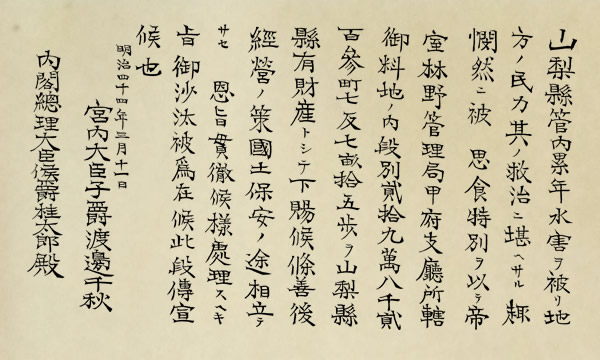 山梨縣管內累年水害ヲ被リ地
方ノ民力其ノ救治ニ堪ヘサル趣
憫然ニ被 思食特別ヲ以テ帝
室林野管理局甲府支廳所轄
御料地ノ內段別貳拾九萬八千貳
百參町七反七畝拾五步ヲ山梨縣
縣有財產トシテ下賜候條善後
經營ノ策國土保安ノ途相立テ
サセ 恩旨貫徹候樣處理スヘキ
旨御沙汰被爲在候此段傳宣
候也
明治四十四年三月十一日
宮內大臣子爵渡邊千秋
內閣總理大臣侯爵桂太郎殿